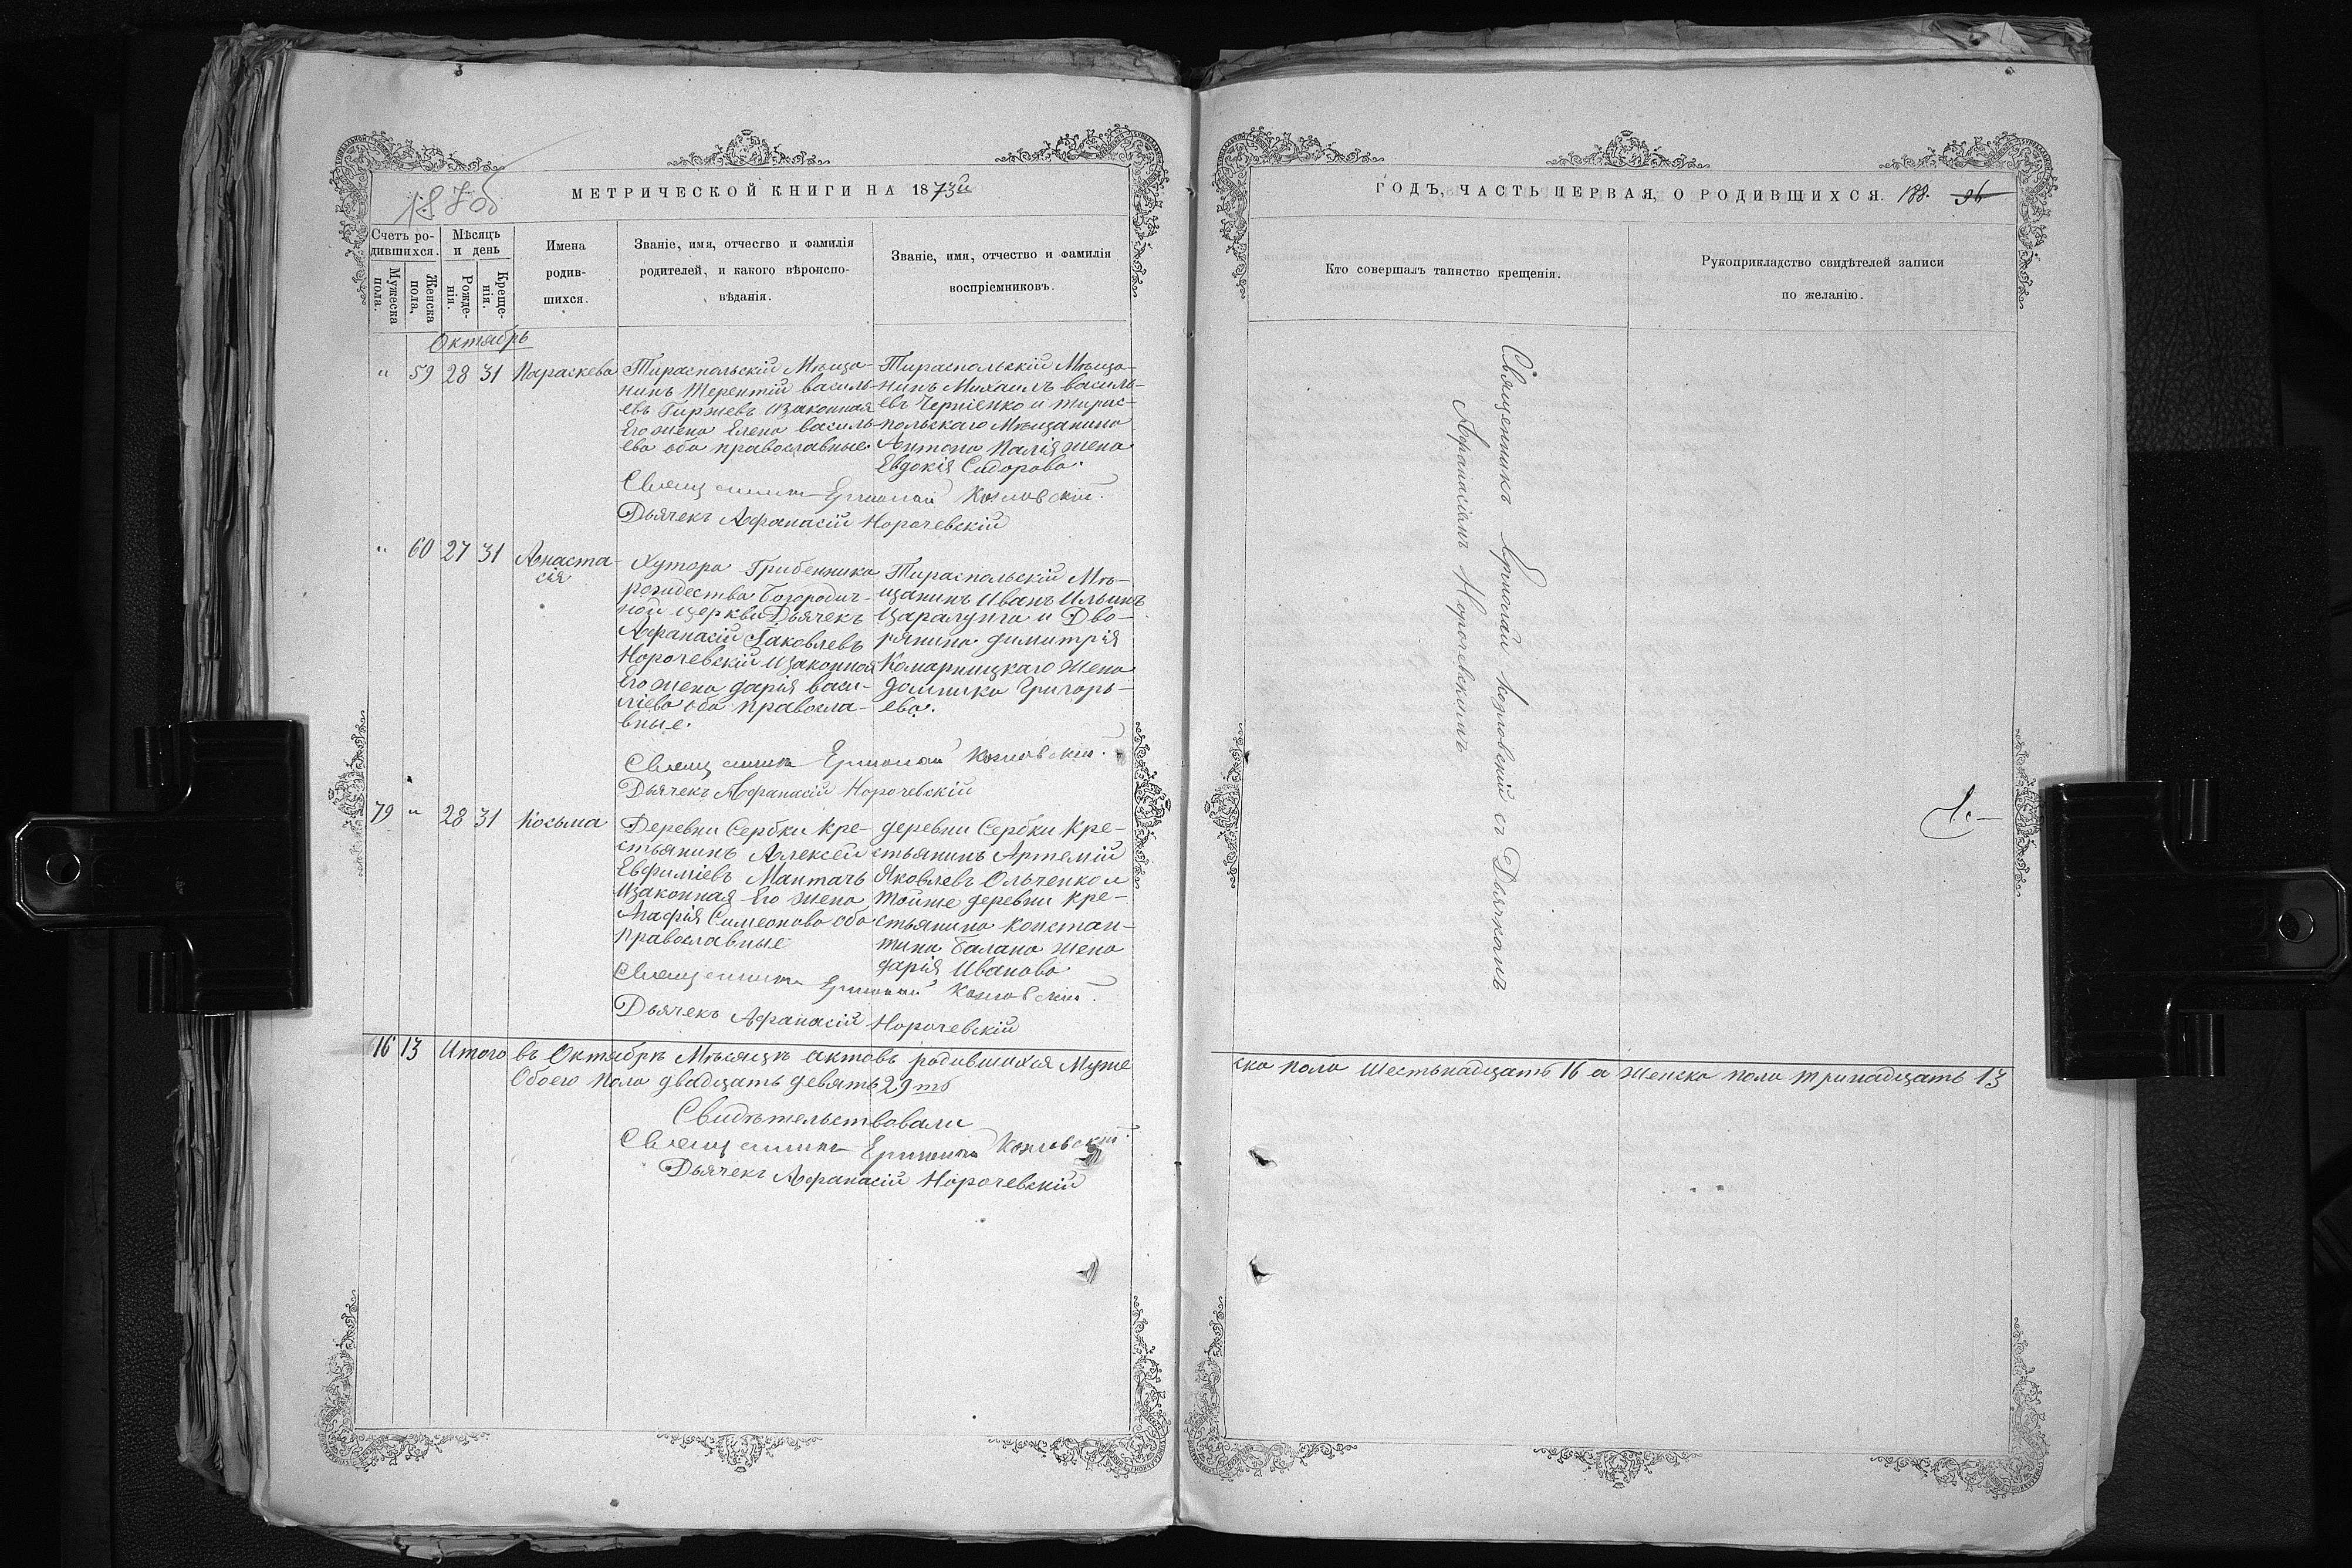 МЕТРИЧЕСКОЙ КНИГИ НА 1873й
Счетъ ро-
дившихся.
Мужеска
пола.
Женска
пола.
Мѣсяцъ
и день
Рожде-
нія.
Креще-
нія.
Имена
родив-
шихся.
Званіе, имя, отчество и фамилія
родителей, и какого вѣроиспо-
вѣданія.
Званіе, имя, отчество и фамилія
воспріемниковъ.
Октябрь
" 59 28 31 Параскева
Тираспольскій Мѣща-
нинъ Терентій василь-
евъ Гиржевъ изаконная
Его жена Елена василь-
ева оба православные.
Тираспольскій Мѣща-
нинъ Михаилъ василь-
евъ Черніенко и тирас-
польскаго Мѣщанина
Антона Палія жена
Евдокія Сидорова.
Священникъ Ермолай Козловскій.
Дьячекъ Афанасій Норочевскій
" 60 27 31 Анаста-
сія
Хутора Гребенника
рождества Богородич-
ной церкви Дьячекъ
Афанасій Іаковлевъ
Норочевскій изаконная
Его жена дарія васи-
ліева оба правосла-
вные.
Тираспольскій Мѣ-
щанинъ Иванъ Ильинъ
Царалунга и Дво-
рянина димитрія
Комарницкаго жена
домника Григорь-
ева.
Священникъ Ермолай Козловскій.
Дьячекъ Афанасій Норочевскій
79 " 28 31 Косьма
Деревни Сербки Кре-
стьянинъ Алексей
Евфиміевъ Мантачъ
Изаконная Его жена
Агафія Симеонова оба
православные
деревни Сербки Кре-
стьянинъ Артемій
Яковлевъ Ольченко и
тойже деревни кре-
стьянина констан-
тина Балана жена
дарія Иванова
Священникъ Ермолай Козловскій.
Дьячекъ Афанасій Норочевскій
16 13 Итого въ Октябрѣ Мѣсяцѣ актовъ родившихся Муже
Обоего пола двадцать девять 29ть
Свидѣтельствовали
Священникъ Ермолай Козловскій.
Дьячекъ Афанасій Норочевскій
ГОДЪ, ЧАСТЬ ПЕРВАЯ, О РОДИВШИХСЯ. 188. 96
Кто совершалъ таинство крещенія.
Рукоприкладство свидѣтелей записи
по желанію.
Священникъ Ермолай Козловскій съ Дьячкомъ
Афанасіемъ Норочевскимъ
ска пола Шестьнадцать 16 а женска пола тринадцать 13